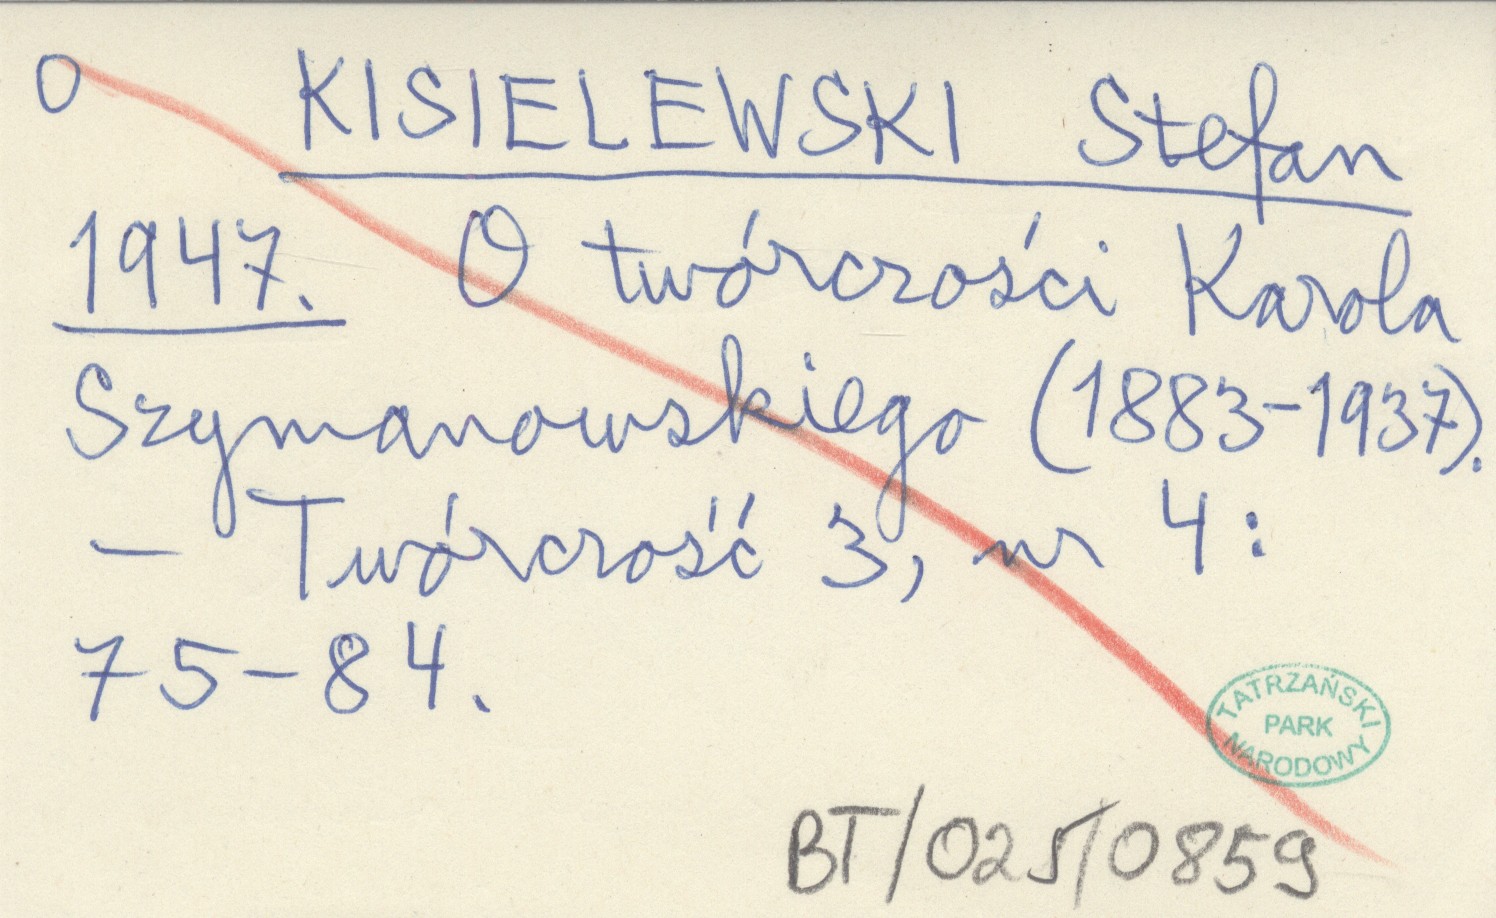 O KISIELEWSKI Stefan
1947. O twórczości Karola
Szymanowskiego (1883-1937).
– Twórczość 3, nr 4:
75-84.
TATRZAŃSKI
PARK
NARODOWY
BT/025/0859